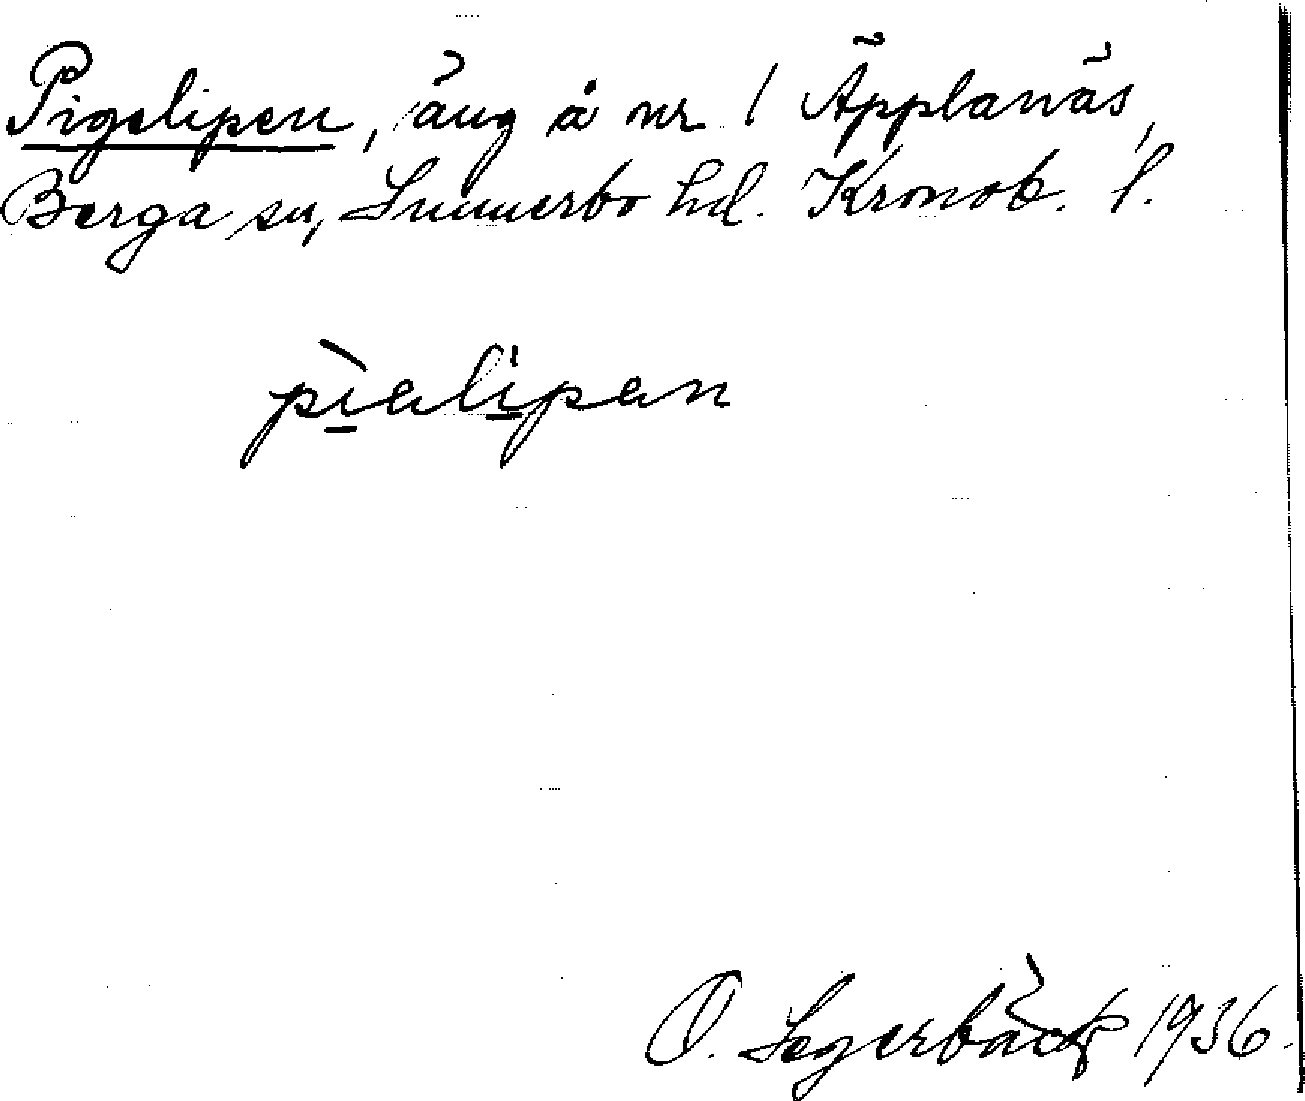 Pigelipen, äng å nr 1 Äpplanäs,
Berga sn, Sunnerbo hd. Kronob. l.
pìalipan
O. Segerbäck 1936.